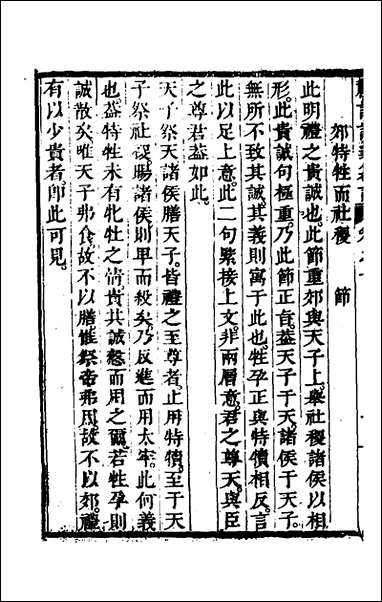 郊特牲而社稷　節
此明禮之貴誠也此節重郊與天子上舉社稷諸侯以相
形此貴誠句極重乃此節正旨葢天子于天諸侯于天子
無所不致其誠其義則寓于此也牲孕正與特犢相反言
此以足上意此二句緊接上文非兩層意君之尊天與臣
之尊君葢如此
天子祭天諸侯膳天子皆禮之至尊者止用特犢至于天
子祭社稷賜諸侯則卑而殺矣乃反進而用太牢此何義
也葢特牲未有牝牡之情貴其誠慤而用之爾若牲孕則
誠散矣唯天子弗食故不以膳惟祭帝弗用故不以郊禮
有以少貴者卽此可見